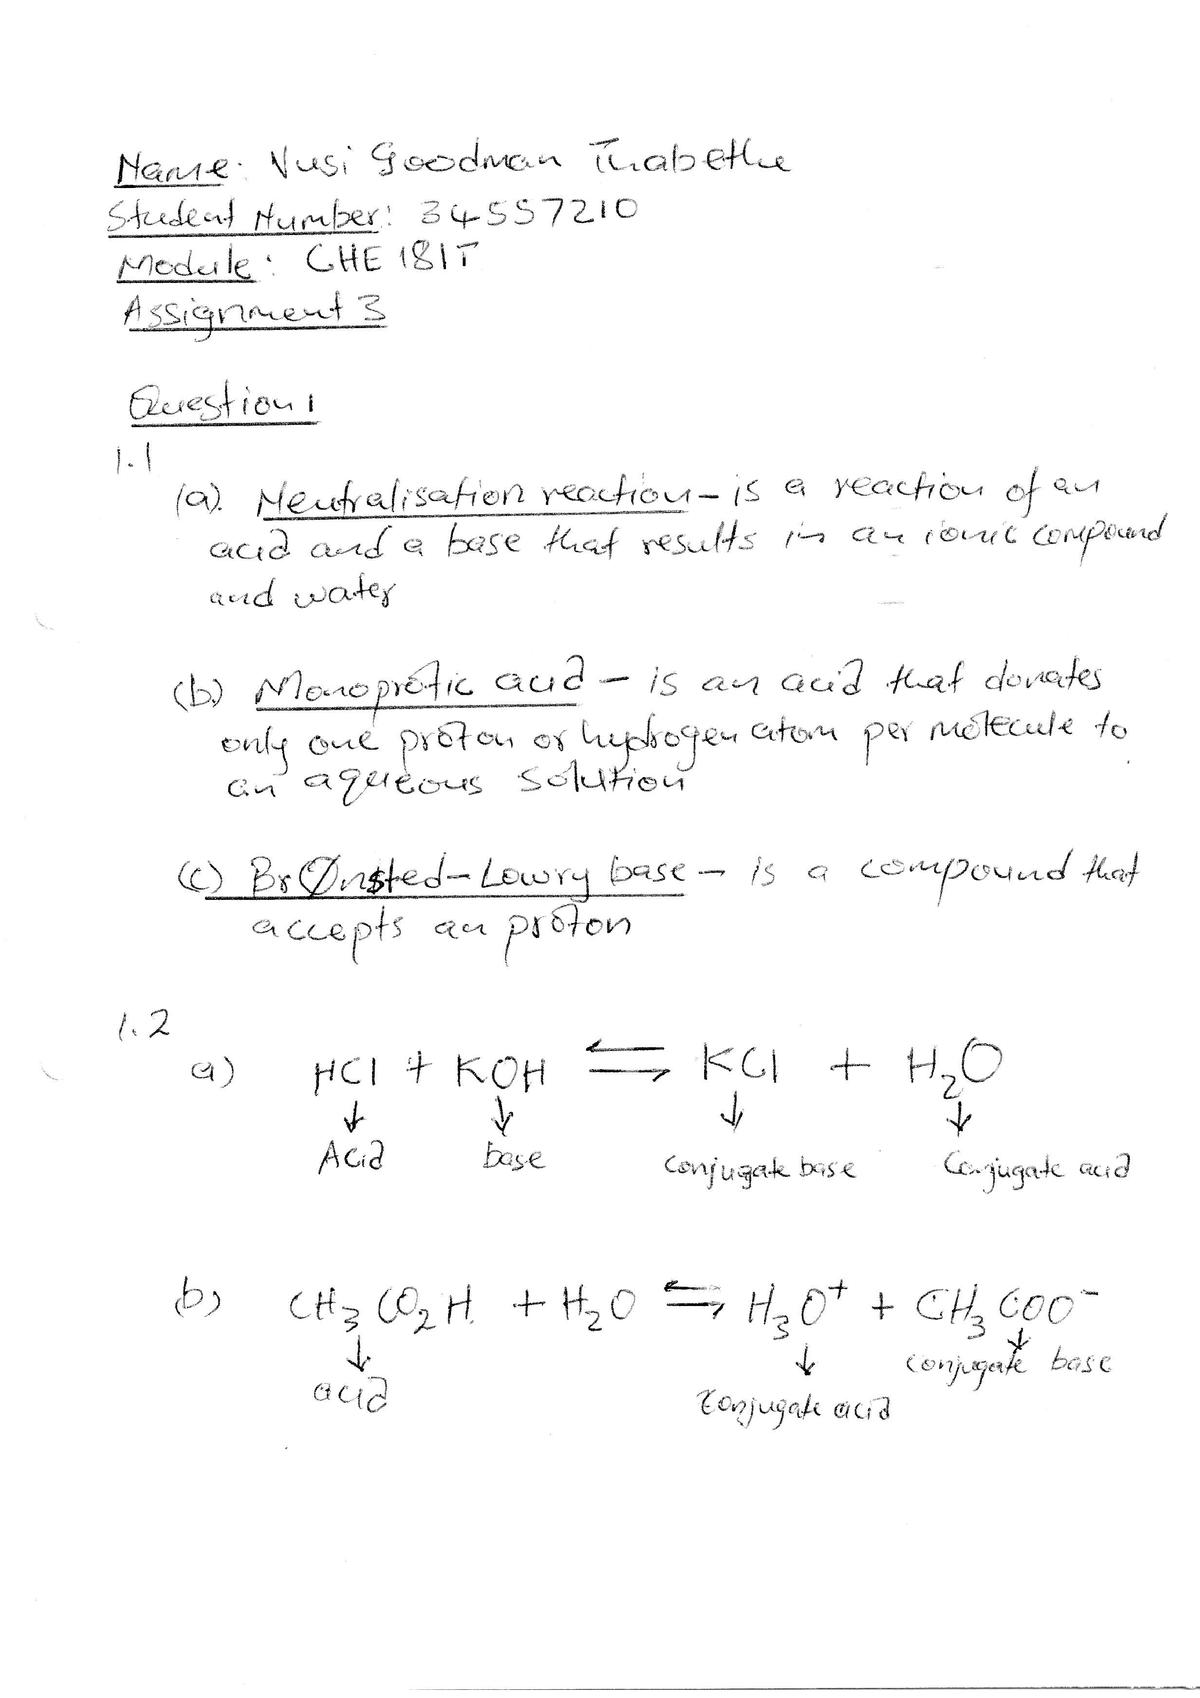 Name: Vusi Goodman Thabethe
Student Number: 34557210
Module: CHE 181T
Assignment 3
Question 1
1.1
(a). Neutralisation reaction – is a reaction of an
acid and a base that results in an ionic compound
and water
(b) Monoprotic acid – is an acid that donates
only one proton or hydrogen atom per molecule to
an aqueous solution
(c) BrØnsted-Lowry base – is a compound that
accepts an proton
1.2
a) HCl + KOH ⇆ KCl + H₂O
↓ ↓ ↓ ↓
Acid base conjugate base Conjugate acid
b) CH₃CO₂H + H₂O ⇆ H₃O⁺ + CH₃COO⁻
↓ ↓ ↓
acid conjugate acid conjugate base